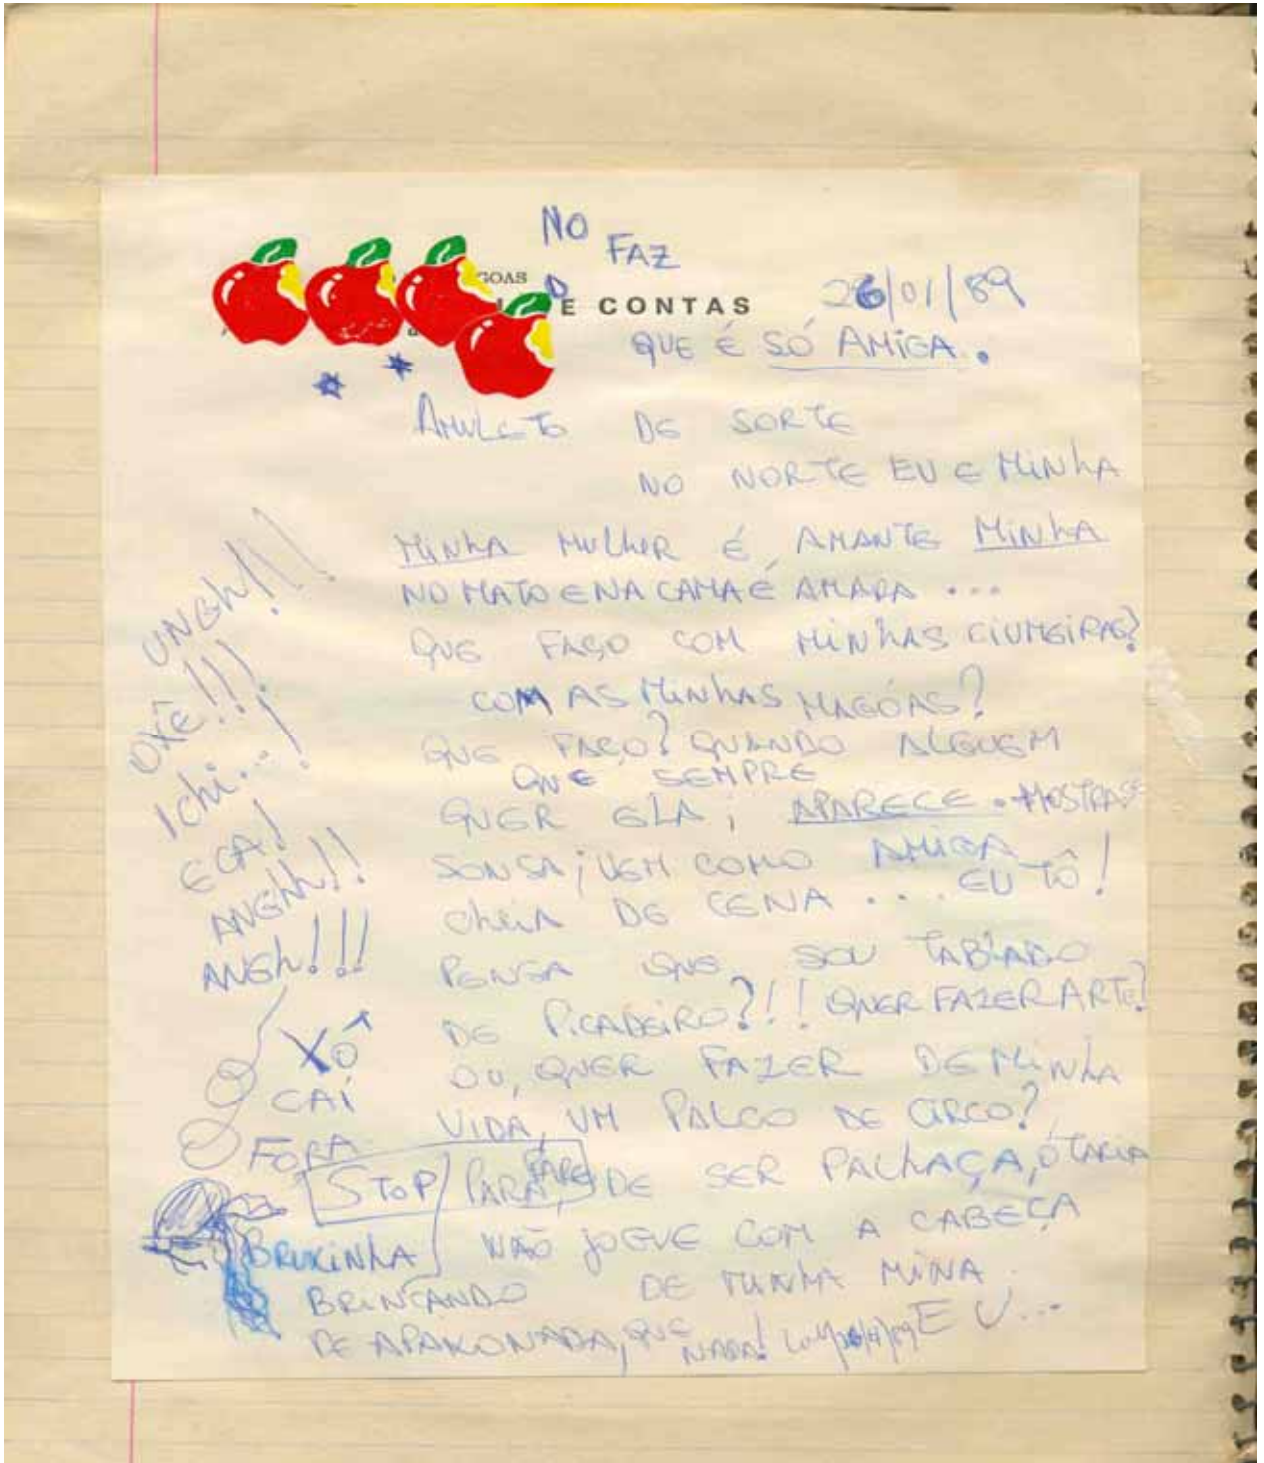 NO
FAZ
GOAS
E CONTAS
26/01/89
QUE É SÓ AMIGA.
AMULETO DE SORTE
NO NORTE EU E MINHA
MINHA MULHER É AMANTE MINHA
NO MATO E NA CAMA É AMADA ...
QUE FAÇO COM MINHAS CIUMEIRAS?
COM AS MINHAS MAGÓAS?
QUE FAÇO? QUANDO ALGUEM
QUE SEMPRE
QUER ELA, APARECE. MOSTRASE
SONSA; VEM COMO AMIGA
CHEIA DE CENA ... EU TÔ!
PENSA QUE SOU TABLADO
DE PICADEIRO?!! QUER FAZER ARTE?
OU, QUER FAZER DE MINHA
VIDA, UM PALCO DE CIRCO?
STOP/ PARA, PARE DE SER PALHAÇA, ÓTARIA
NÃO JOGUE COM A CABEÇA
DE MINHA MINA.
EU...
UNGH!!!
OXÊ!!!
ICHI...!
ECA!
ANGHH!!
ANGH!!!
XÔ
CAÍ
FORA
BRUXINHA
BRINCANDO
DE APAIXONADA, QUE
NADA!